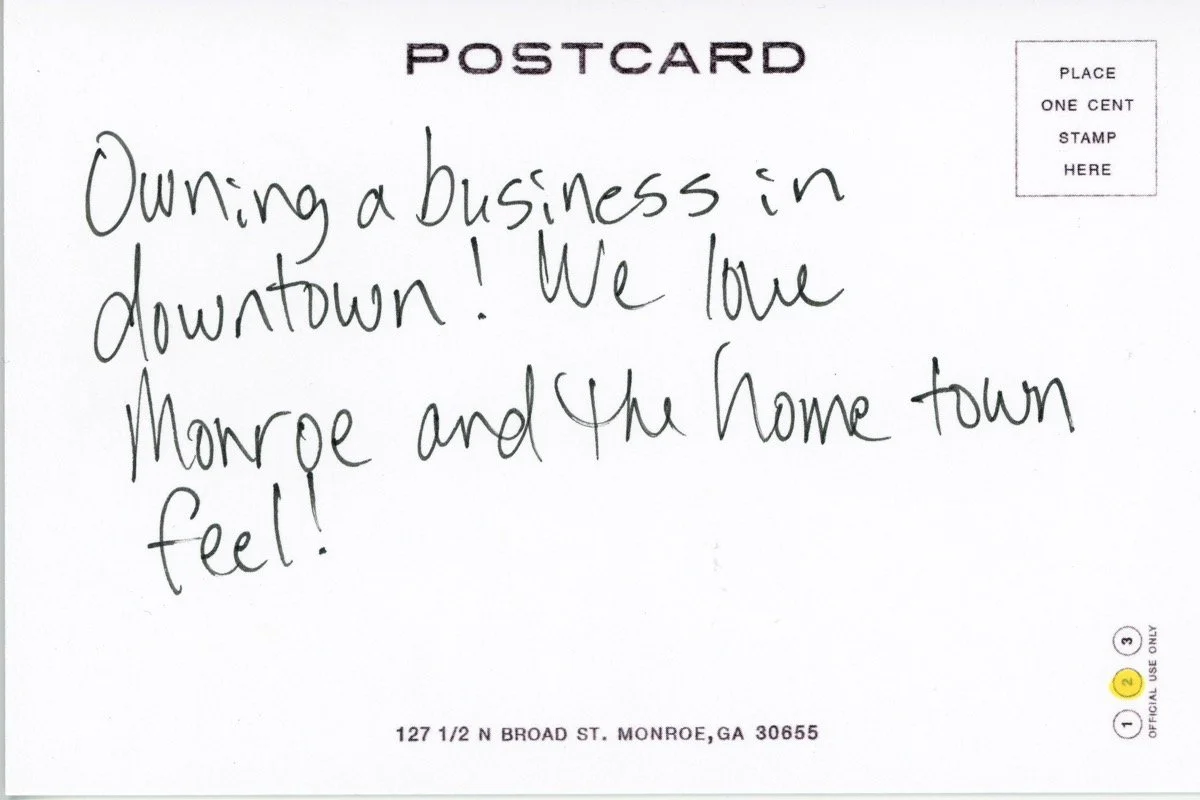 POSTCARD
PLACE
ONE CENT
STAMP
HERE
Owning a business in
downtown! We love
Monroe and the home town
feel!
1 2 3
OFFICIAL USE ONLY
127 1/2 N BROAD ST. MONROE,GA 30655